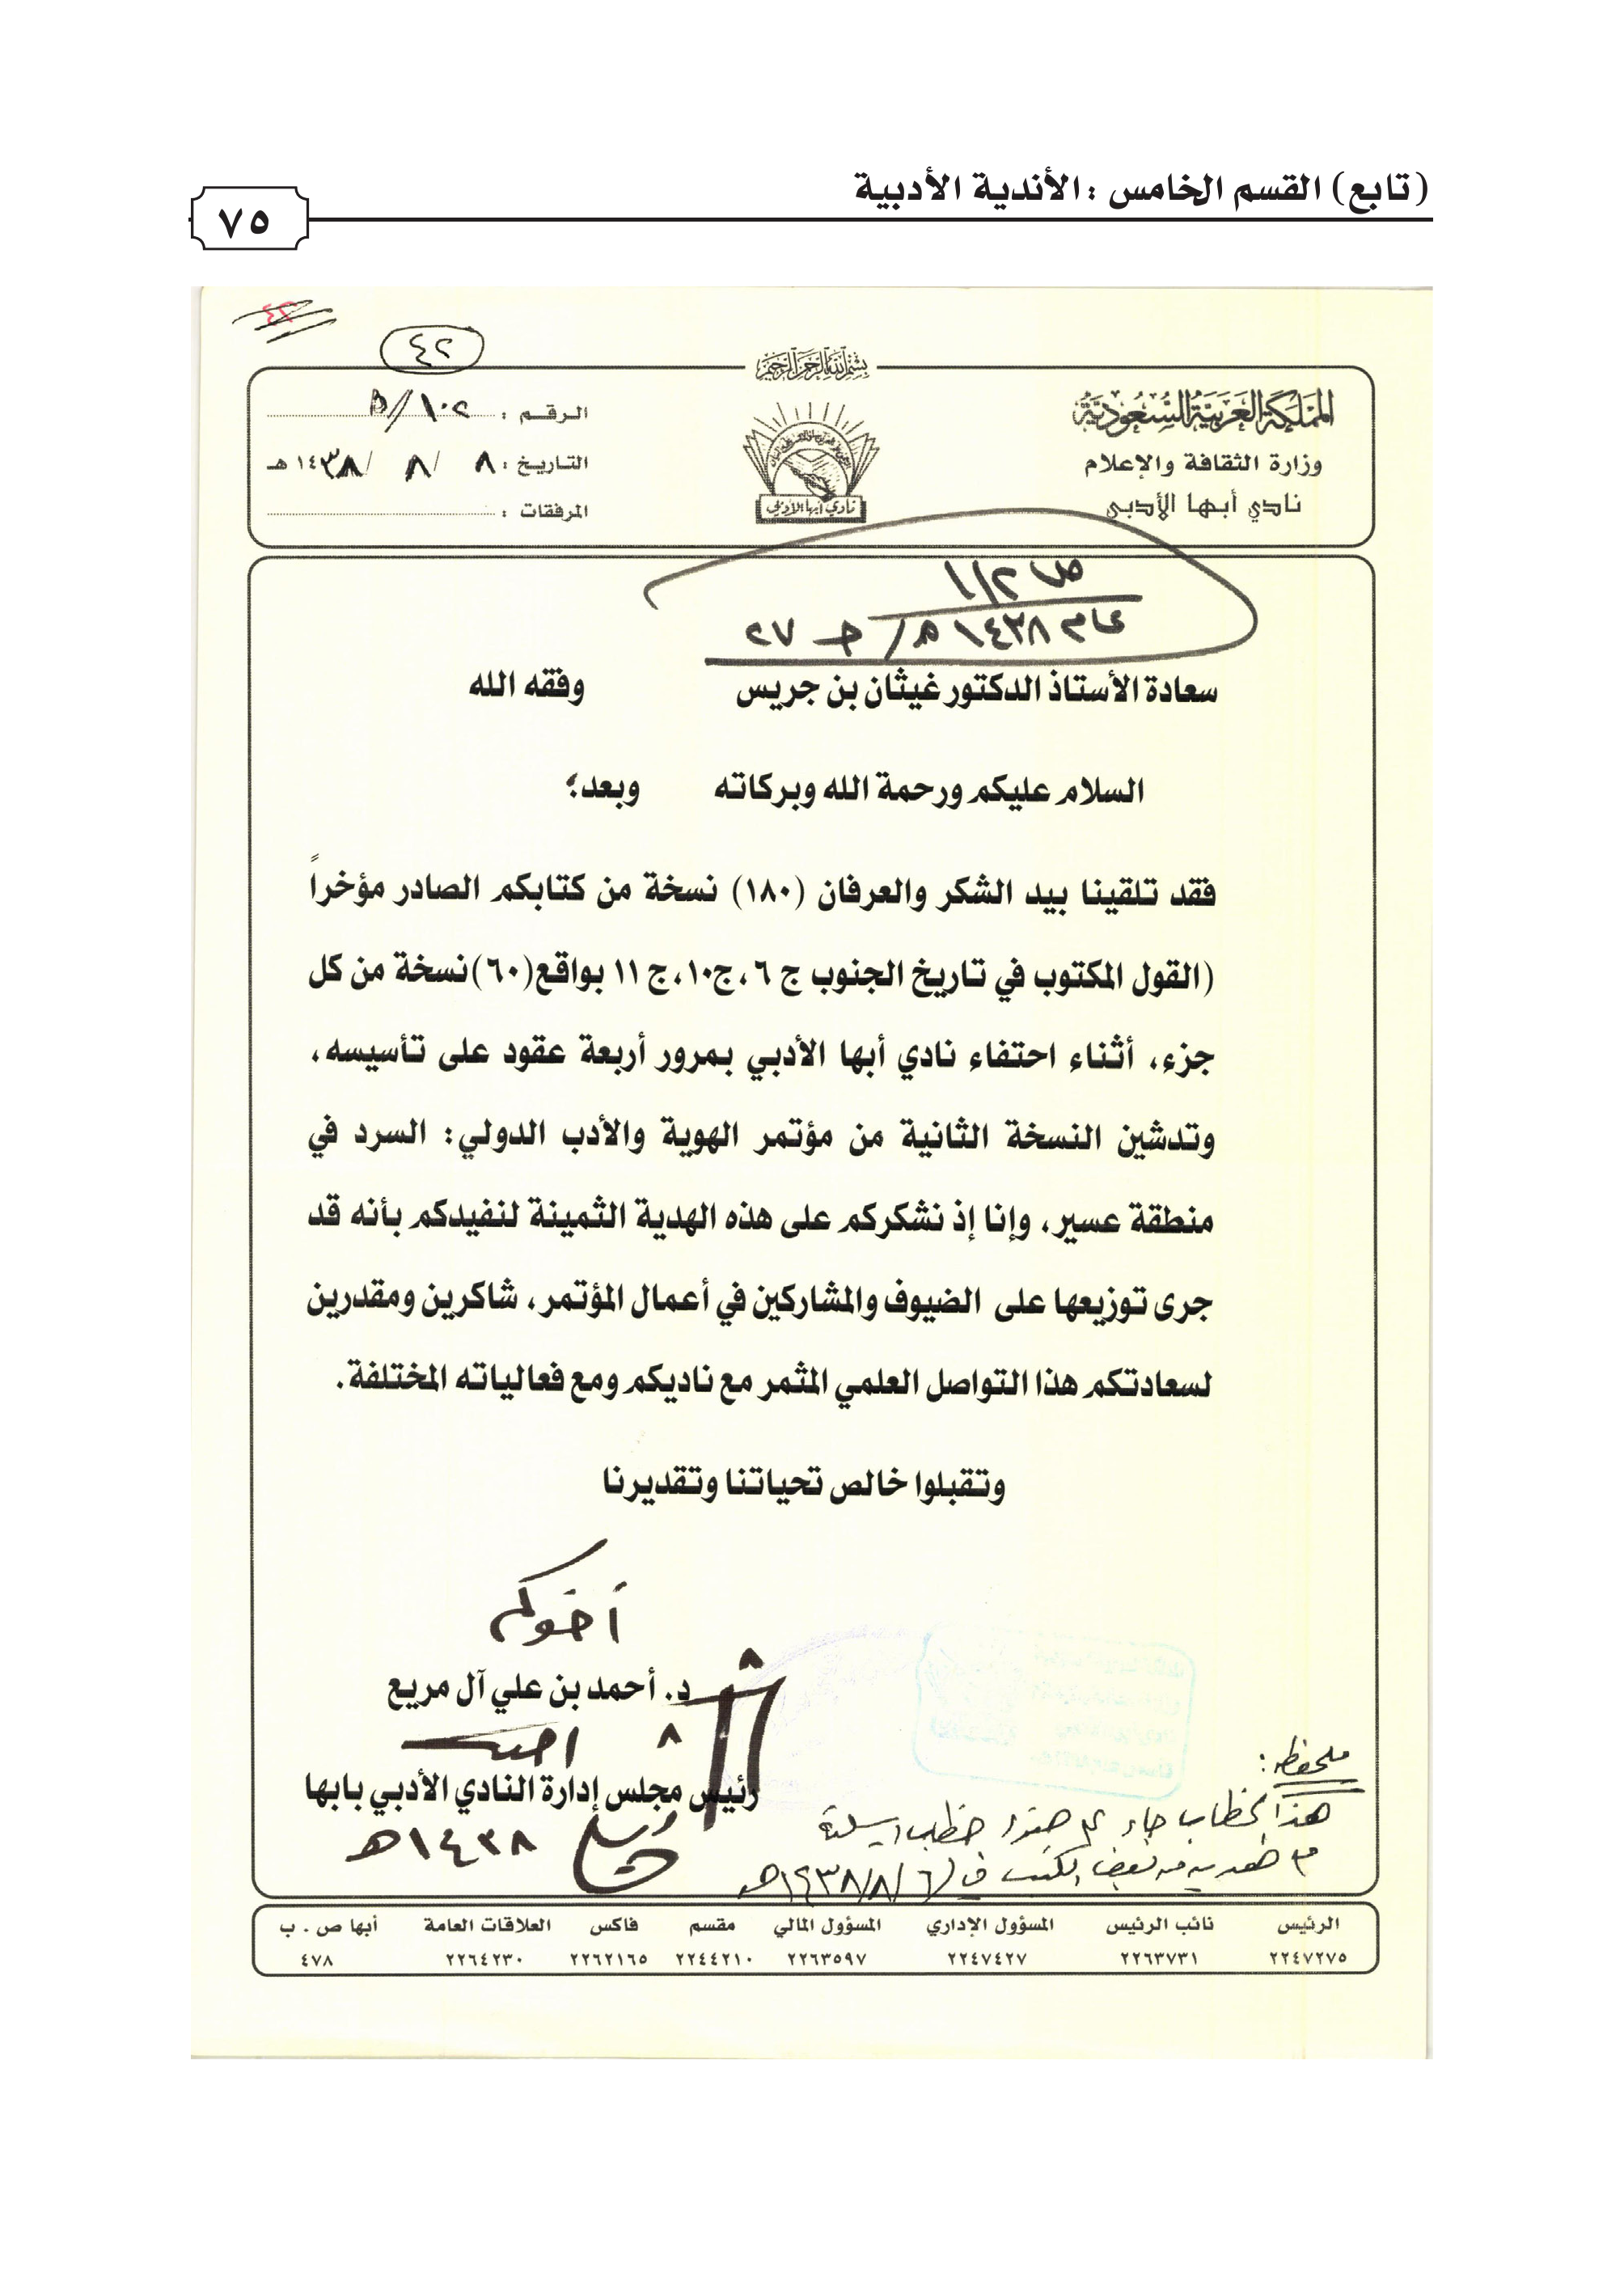 (تابع) القسم الخامس : الأندية الأدبية
٧٥
٤٢
٤٢
بسم الله الرحمن الرحيم
المملكة العربية السعودية
وزارة الثقافة والإعلام
نادي أبها الأدبي
نادي أبها الأدبي
الرقم : ١٠٢//
التاريخ : ٨ / ٨ / ١٤٣٨ هـ
المرفقات :
عام ١٤٣٨هـ / ج ٢٧
سعادة الأستاذ الدكتور غيثان بن جريس وفقه الله
السلام عليكم ورحمة الله وبركاته وبعد؛
فقد تلقينا بيد الشكر والعرفان (١٨٠) نسخة من كتابكم الصادر مؤخراً
(القول المكتوب في تاريخ الجنوب ج ٦، ج١٠، ج ١١ بواقع(٦٠)نسخة من كل
جزء، أثناء احتفاء نادي أبها الأدبي بمرور أربعة عقود على تأسيسه،
وتدشين النسخة الثانية من مؤتمر الهوية والأدب الدولي: السرد في
منطقة عسير، وإنا إذ نشكركم على هذه الهدية الثمينة لنفيدكم بأنه قد
جرى توزيعها على الضيوف والمشاركين في أعمال المؤتمر، شاكرين ومقدرين
لسعادتكم هذا التواصل العلمي المثمر مع ناديكم ومع فعالياته المختلفة.
وتقبلوا خالص تحياتنا وتقديرنا
أخوكم
د. أحمد بن علي آل مريع
رئيس مجلس إدارة النادي الأدبي بابها
١٤٣٨هـ
ملحظه :
هذا الخطاب جاء خطاب
بعض الكتب في ١٤٣٨/٨/٦هـ
الرئيس نائب الرئيس المسؤول الإداري المسؤول المالي مقسم فاكس العلاقات العامة أبها ص . ب
٢٢٤٧٢٧٥ ٢٢٦٣٧٣١ ٢٢٤٧٤٢٧ ٢٢٦٣٥٩٧ ٢٢٤٤٢١٠ ٢٢٦٢١٦٥ ٢٢٦٤٢٣٠ ٤٧٨